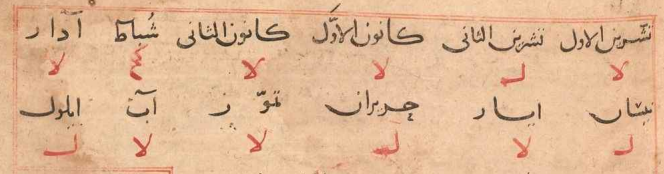 تشرين الاول تشرين الثانى كانون الاوّل كانون الثانى شُباط آدار
لا ل لا لا كح لا
نيسان ايار حزيران تموّز آب ايلول
ل لا ل لا لا ل